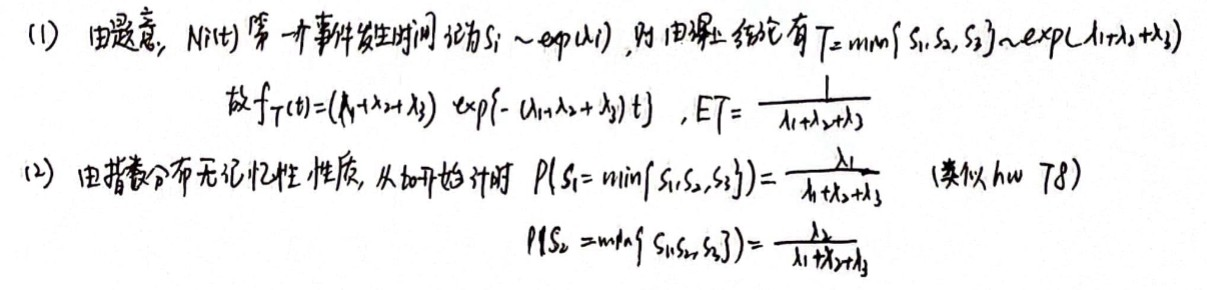 (1) 由题意, Ni(t) 第一个事件发生时间记为Si ~exp(λi), 则由课上结论有 T=min{S1,S2,S3}~exp(λ1+λ2+λ3)
故fT(t)=(λ1+λ2+λ3) exp{-(λ1+λ2+λ3)t}, ET= 1/(λ1+λ2+λ3)
(2) 由指数分布无记忆性性质, 从t0开始计时 P(S1=min{S1,S2,S3})= λ1/(λ1+λ2+λ3) (类似hw T8)
P(S2=min{S1,S2,S3})= λ2/(λ1+λ2+λ3)